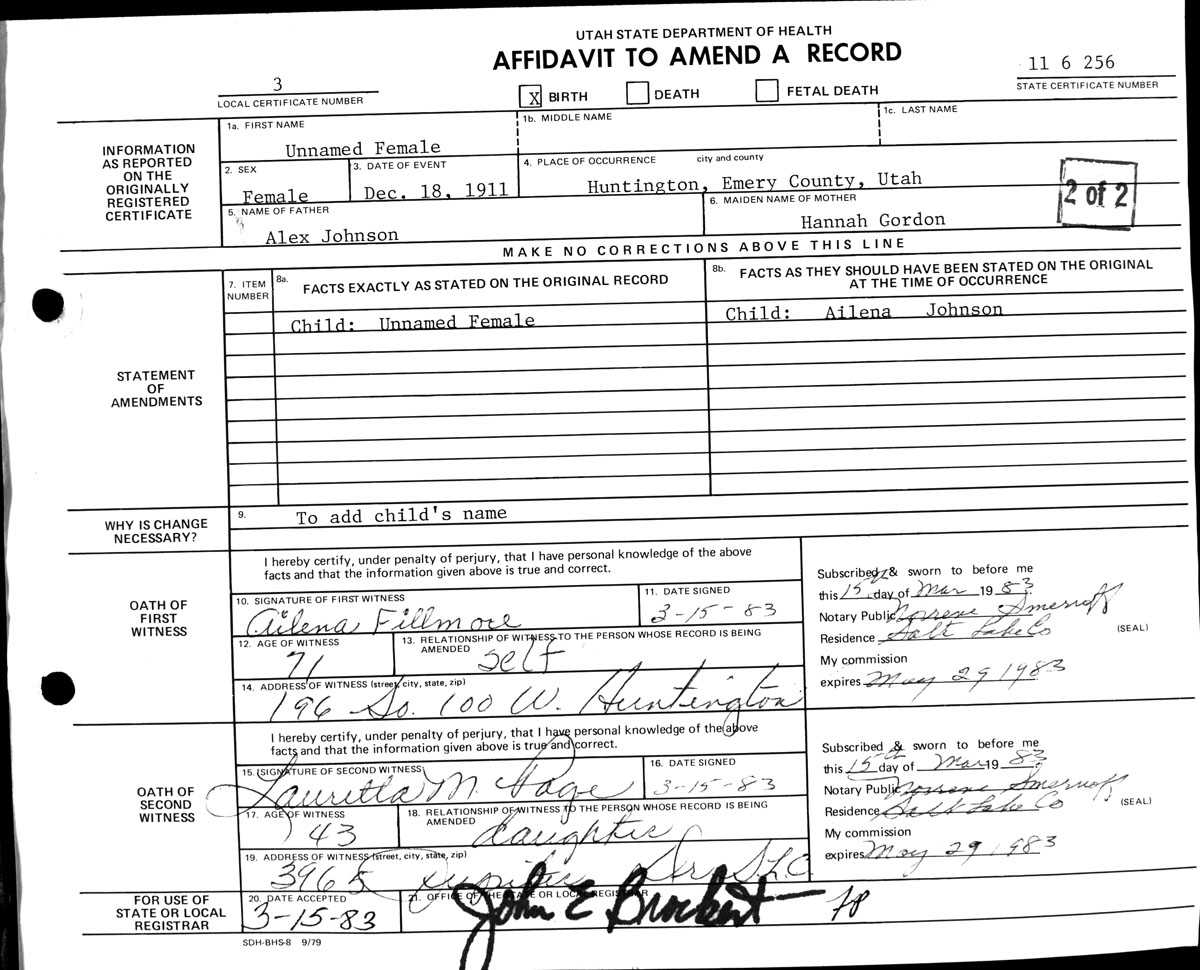 UTAH STATE DEPARTMENT OF HEALTH
AFFIDAVIT TO AMEND A RECORD
3
LOCAL CERTIFICATE NUMBER
X BIRTH DEATH FETAL DEATH
11 6 256
STATE CERTIFICATE NUMBER
INFORMATION AS REPORTED ON THE ORIGINALLY REGISTERED CERTIFICATE
1a. FIRST NAME 1b. MIDDLE NAME 1c. LAST NAME
Unnamed Female
2. SEX 3. DATE OF EVENT 4. PLACE OF OCCURRENCE city and county
Female Dec. 18, 1911 Huntington, Emery County, Utah
2 of 2
5. NAME OF FATHER 6. MAIDEN NAME OF MOTHER
Alex Johnson Hannah Gordon
MAKE NO CORRECTIONS ABOVE THIS LINE
STATEMENT OF AMENDMENTS
7. ITEM NUMBER 8a. FACTS EXACTLY AS STATED ON THE ORIGINAL RECORD 8b. FACTS AS THEY SHOULD HAVE BEEN STATED ON THE ORIGINAL AT THE TIME OF OCCURRENCE
Child: Unnamed Female Child: Ailena Johnson
WHY IS CHANGE NECESSARY?
9. To add child's name
OATH OF FIRST WITNESS
I hereby certify, under penalty of perjury, that I have personal knowledge of the above
facts and that the information given above is true and correct.
10. SIGNATURE OF FIRST WITNESS 11. DATE SIGNED
Ailena Fillmore 3-15-83
12. AGE OF WITNESS 13. RELATIONSHIP OF WITNESS TO THE PERSON WHOSE RECORD IS BEING AMENDED
71 self
14. ADDRESS OF WITNESS (street, city, state, zip)
196 So. 100 W. Huntington
Subscribed & sworn to before me
this 15 day of Mar 1983
Notary Public Norrene Smernoff
Residence Salt Lake Co
(SEAL)
My commission
expires May 29 1983
OATH OF SECOND WITNESS
I hereby certify, under penalty of perjury, that I have personal knowledge of the above
facts and that the information given above is true and correct.
15. SIGNATURE OF SECOND WITNESS 16. DATE SIGNED
Lauretta M. Page 3-15-83
17. AGE OF WITNESS 18. RELATIONSHIP OF WITNESS TO THE PERSON WHOSE RECORD IS BEING AMENDED
43 daughter
19. ADDRESS OF WITNESS (street, city, state, zip)
3965 Jupiter S.L.C.
Subscribed & sworn to before me
this 15th day of Mar 1983
Notary Public Norrene Smernoff
Residence Salt Lake Co
(SEAL)
My commission
expires May 29, 1983
FOR USE OF STATE OR LOCAL REGISTRAR
20. DATE ACCEPTED 21. OFFICE OF THE STATE OR LOCAL REGISTRAR
3-15-83 John E Brockert
SDH-BHS-8 9/79